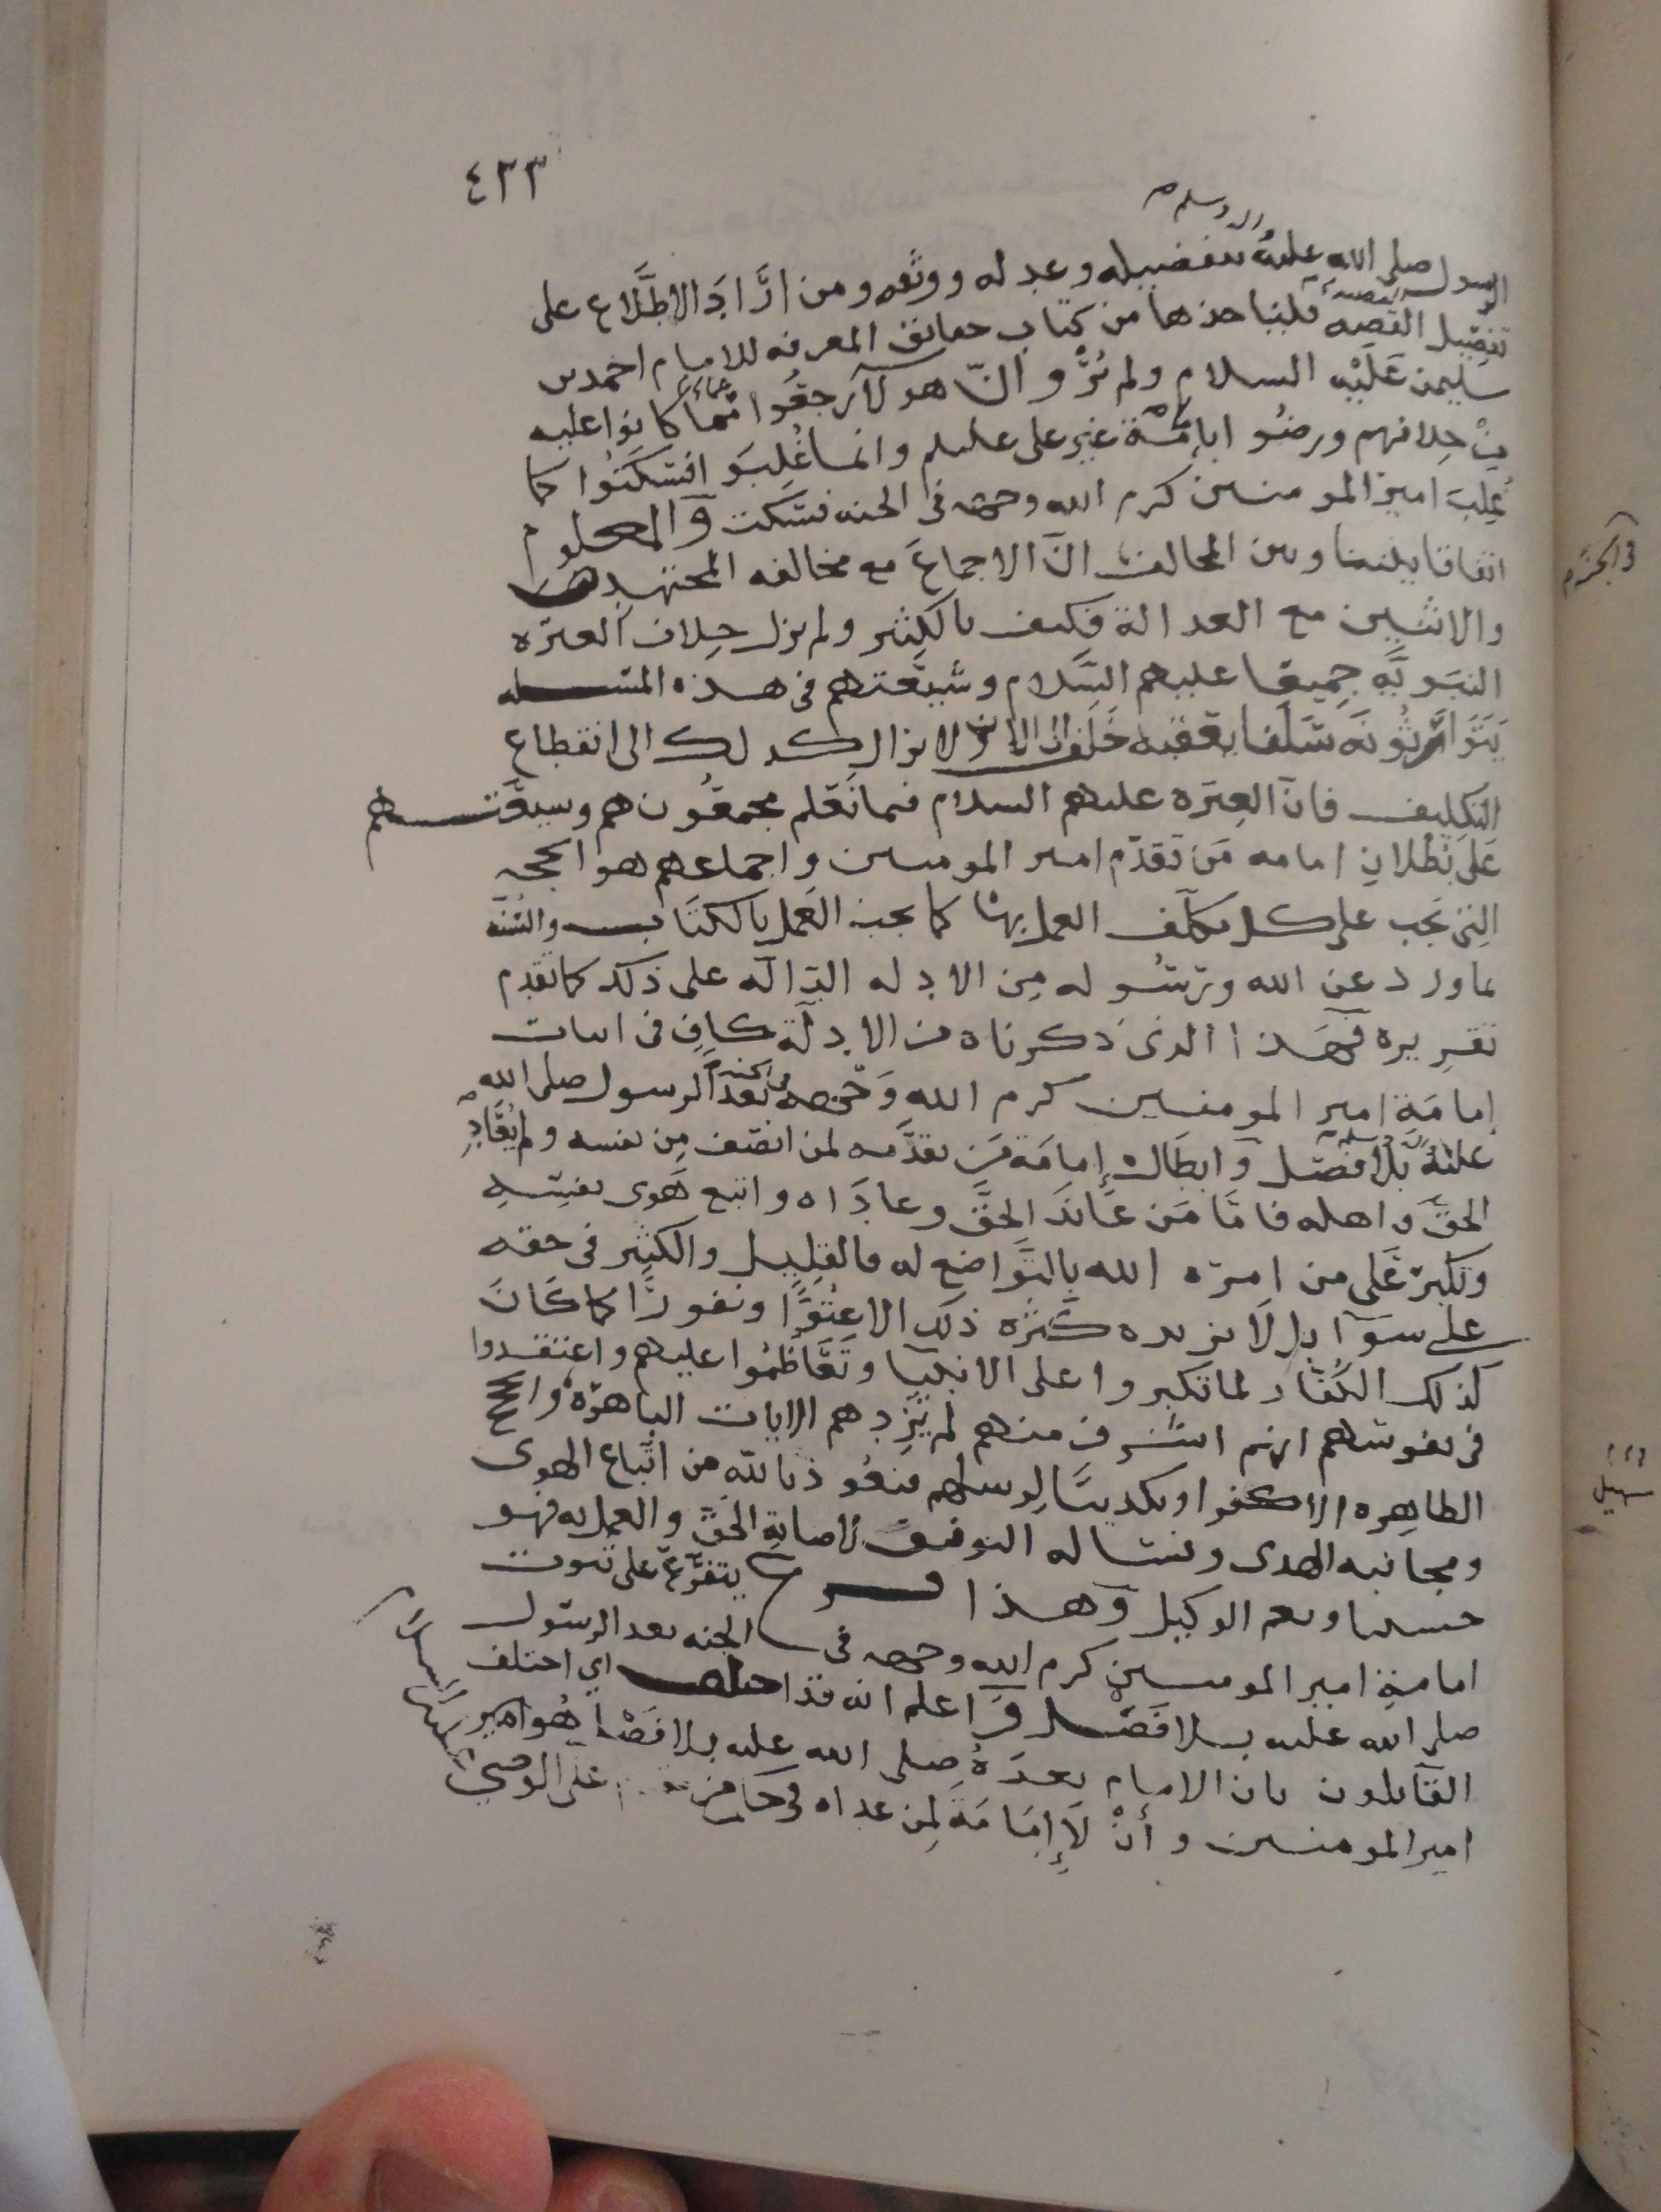 ٤٣٣
واله وسلم
الرسول صلى الله عليه بتفضيله وعدله ووثقه ومن ارَّادَ الاطلَّاع على
تفصيل القصه فلياخذها من كتاب حقائق المعرفه للامام احمد بن
سليمن عَلَيْه السلام ولم يُرْوَ انّ هولآ رجعُوا عمّا كانوا عليه
مِنْ خِلافهم ورضُوا بامَامَة غير على عليلم وانما غُلِبَو افسَكتُوا كما
غُلِبَ امير المومنين كرم الله وجهه فى الجنه فسَكت وَالمعلوم
اتفاقا بيننا وبين المخالف انّ الاجماعَ مع مخالفه المجتهد
والاثنين مع العدالة فكيف بالكثير ولم يزل خِلاف العترَه
النبَويّه جميعًا عليهم السَّلام وشيعَتهم فى هذه المسئله
يَتَوَارَثُونَه سَلَفا يعقبه خَلف الى الان ولا يزال كذلك الى انقطاع
التكليف فانّ العِترَه عليهم السلام فيما نَعْلم مجمعُون هم وشيعَتهم
عَلى بُطْلانِ امامه مَن تقدّم امير المومنين وَاجماعهم هو الحجه
التى تجب على كل مكلّف العمل بها كما يجب العَمل بالكتاب والسُّنَّه
بما ورد عن الله ورسُوله مِن الادله الدّالّه على ذلك كما تقدم
تقرِيره فهَذا الذى ذكرناه من الادِلّة كافٍ فى اثبات
إمامَة امير المومنين كرم الله وَجهه فى الجنه بَعدَ الرسول صلى الله
عليهُ واله وسلم بلا فصْل وَابطَال إمامَة مَن تقدَّمه لمن انصَف مِن نفسه ولم يُعَادِ
الحَقّ وَاهله فامّا مَن عَاندَ الحَقَّ وعادَاه واتبع هَوى نفسِهِ
وتكبرَ عَلى من امرَه الله بالتوَاضع له فالقلِيل والكثِير فى حقه
على سوَآ بل لَا يزيده كثرَه ذلك الا عُتُوًّا ونفورًا كما كَانَ
كذلك الكُفّار لما تكبروا على الانبيا وتَعَاظَمُوا عليهم واعتقدوا
فى نفوسهم انهم اشرف منهم لم تَزِدهم الايات الباهرَهُ والحجج
الظاهِره الا كفرا وتكديبًا لِرسلهم فنعُوذ بالله من اتّباع الهوى
ومجانبه الهدى ونسئاله التوفيق لاصابةِ الحَقّ والعمل به فهو
حسبنا ونعم الوكيل وَهذا فرع يتفَرّع على ثبوت
امامةِ امير المومنين كرم الله وجهه فى الجنه بعد الرسُول
صلى الله عليه بلا فصْل وَاعلم انه قد اختلف اي اختلف
القآئلون بان الامام بعدَهُ صلى الله عليه بلا فصْل هُو امير
امير المومنين وأنْ لَا إمَامَة لِمن عداه فى على الوصي
فى الجزء
سهيل